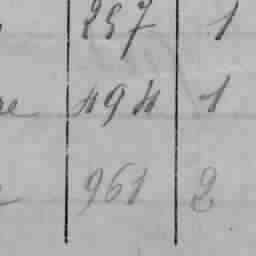 257 1
494 1
961 2